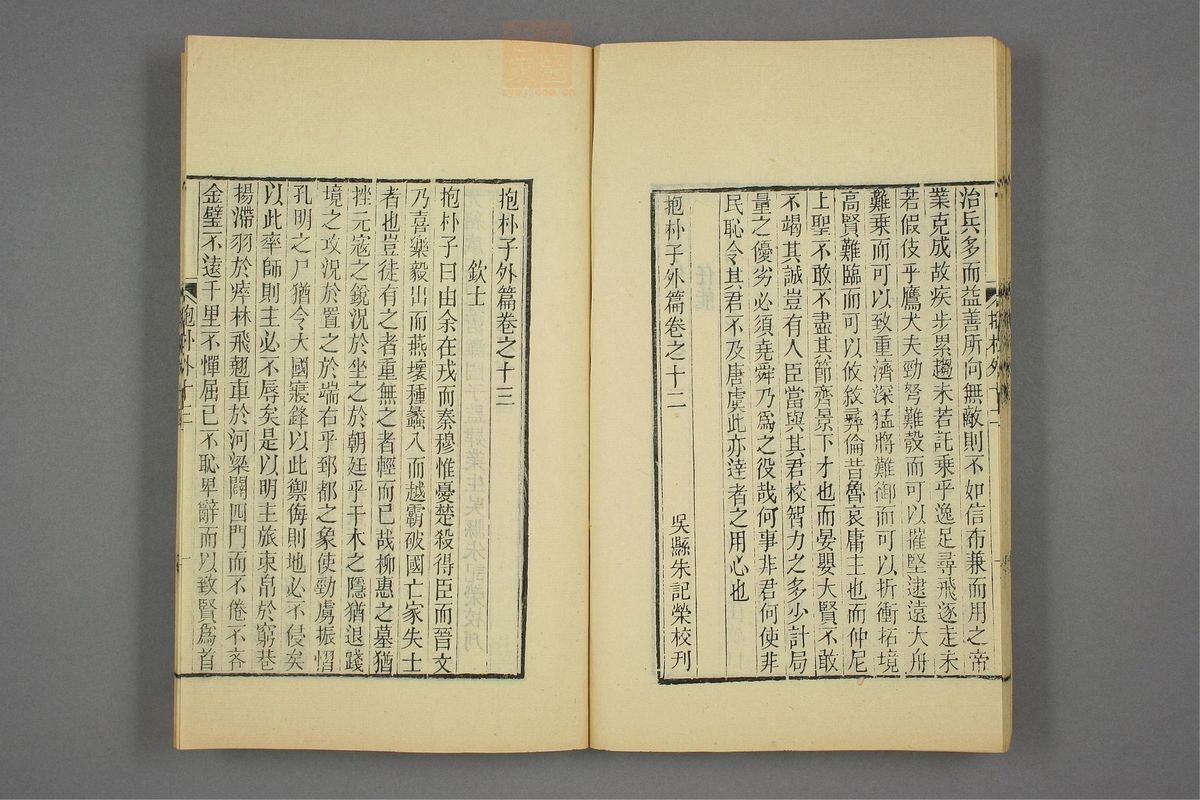 治兵多而益善所向無敵則不如信布兼而用之帝
業克成故疾步累趨未若託乘乎逸足尋飛逐走未
若假伎乎鷹犬夫勁弩難彀而可以摧堅逮遠大舟
難乘而可以致重濟深猛將難御而可以折衝拓境
高賢難臨而可以攸敘彝倫昔魯哀庸主也而仲尼
上聖不敢不盡其節齊景下才也而晏嬰大賢不敢
不竭其誠豈有人臣當與其君校智力之多少計局
量之優劣必須堯舜乃爲之役哉何事非君何使非
民恥令其君不及唐虞此亦達者之用心也
抱朴子外篇卷之十二
吳縣朱記榮校刊
抱朴外十二
抱朴子外篇卷之十三
欽士
抱朴子曰由余在戎而秦穆惟憂楚殺得臣而晉文
乃喜樂毅出而燕壞種蠡入而越霸破國亡家失士
者也豈徒有之者重無之者輕而已哉柳惠之墓猶
挫元寇之銳況於坐之於朝廷乎干木之隱猶退踐
境之攻況於置之於端右乎郅都之象使勁虜振慴
孔明之尸猶令大國寢鋒以此禦侮則地必不侵矣
以此率師則主必不辱矣是以明主旅束帛於窮巷
揚滯羽於瘁林飛翹車於河梁闢四門而不倦不吝
金璧不遠千里不憚屈己不恥卑辭而以致賢爲首
抱朴外十三
一